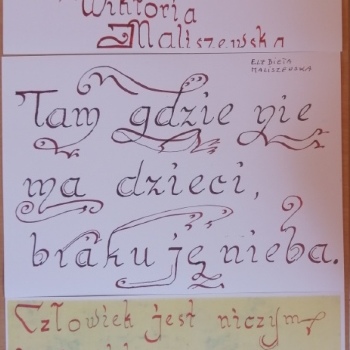 Wiktoria
Maliszewska
ELŻBIETA
MALISZEWSKA
Tam gdzie nie
ma dzieci,
brakuje nieba.
Człowiek jest niczym